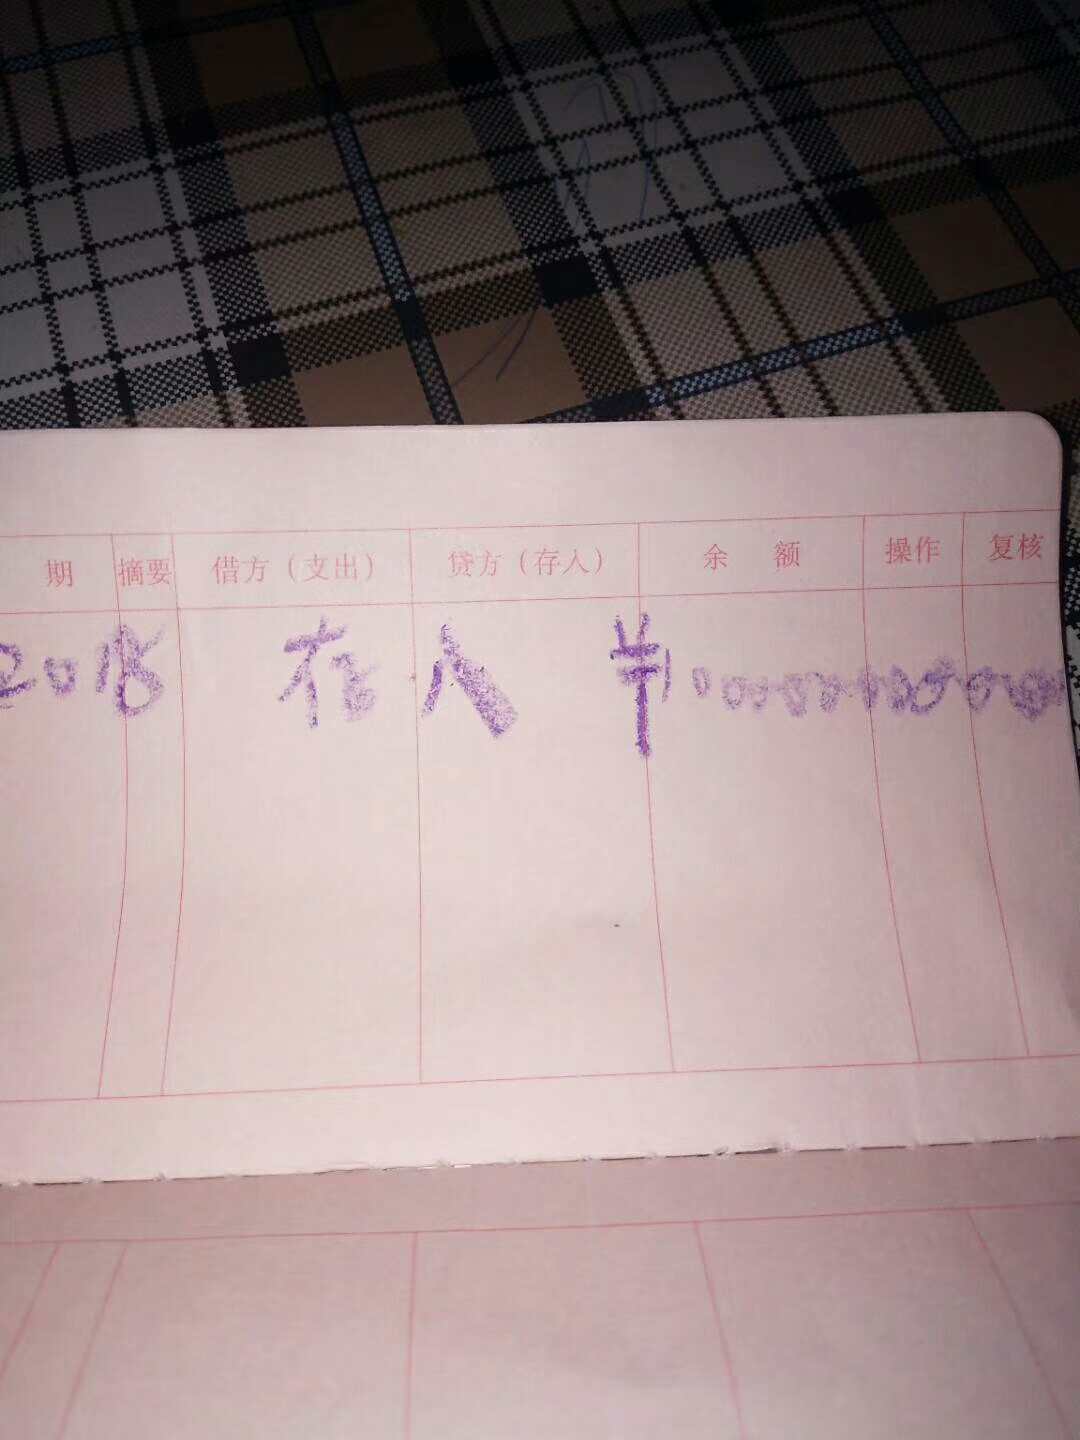 期 摘要 借方（支出） 贷方（存入） 余额 操作 复核
2018 存入 ¥